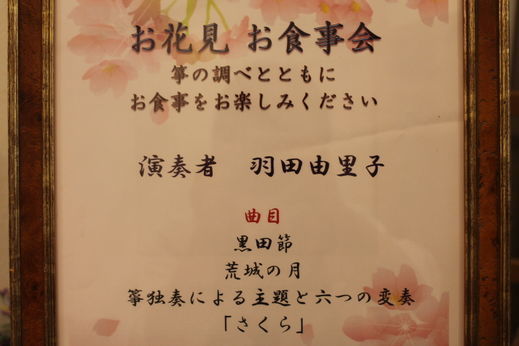 お花見 お食事会
箏の調べとともに
お食事をお楽しみください
演奏者 羽田由里子
曲目
黒田節
荒城の月
箏独奏による主題と六つの変奏
「さくら」